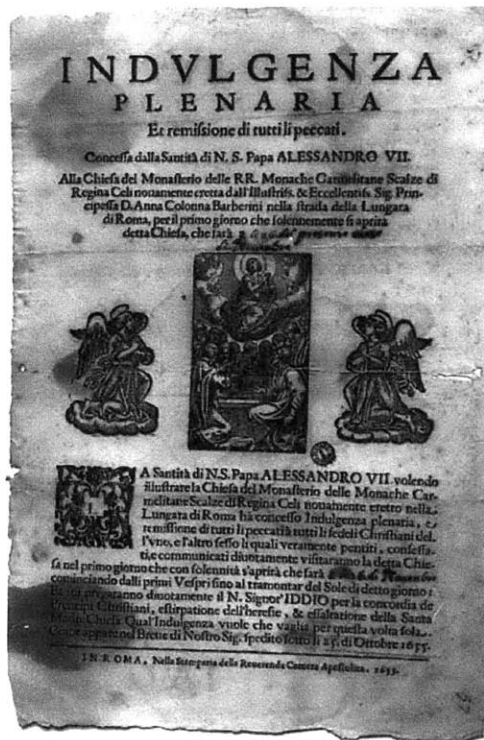 INDVLGENZA
PLENARIA
Et remissione di tutti li peccati.
Concessa dalla Santità di N. S. Papa ALESSANDRO VII.
Alla Chiesa del Monasterio delle RR. Monache Carmelitane Scalze di
Regina Celi nouamente eretta dall'Illustriss. & Eccellentiss. Sig. Prin-
cipessa D. Anna Colonna Barberini nella strada della Lungara
di Roma, per il primo giorno che solennemente si aprirà
detta Chiesa, che sarà
LA Santità di N.S. Papa ALESSANDRO VII. volendo
illustrare la Chiesa del Monasterio delle Monache Car-
melitane Scalze di Regina Celi nouamente eretto nella
Lungara di Roma hà concesso Indulgenza plenaria, e
remissione di tutti li peccati à tutti li fedeli Christiani del-
l'vno, e l'altro sesso li quali veramente pentiti, confessa-
ti, e communicati diuotamente visitaranno la detta Chie-
sa nel primo giorno che con solennità s'aprirà che sarà
cominciando dalli primi Vespri sino al tramontar del Sole di detto giorno:
Et iui pregaranno diuotamente il N. Signor' IDDIO per la concordia de
Prencipi Christiani, estirpatione dell'heresie, & essaltatione della Santa
Madre Chiesa Qual'Indulgenza vuole che vaglia per questa volta sola.
Come appare nel Breue di Nostro Sig. spedito sotto li 25. di Ottobre 1655.
IN ROMA, Nella Stamparia della Reuerenda Camera Apostolica. 1655.